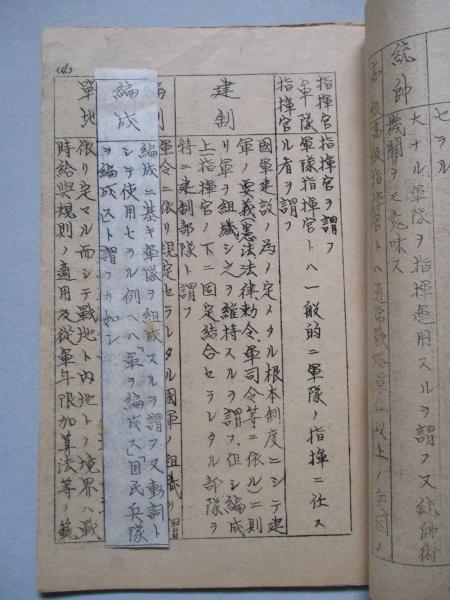 セラル
統帥
大ナル軍隊ヲ指揮運用スルヲ謂フ又統帥術
機関ヲモ意味ス
指揮官ヲ謂フ
軍隊
指揮官
軍隊指揮官トハ一般的ニ軍隊ノ指揮ニ任ス
ル者ヲ謂フ
建制
國軍建設ノ為ノ定メタル根本制度ニシテ建
軍ノ要義憲法法律勅令、軍司令等ニ依ル)ニ則
リ軍ヲ組織シ之ヲ維持スルヲ謂フ、但シ編成
上指揮官ノ下ニ固定結合セラレタル部隊ヲ
特ニ建制部隊ト謂フ
軍令ニ依リ規定セラレタル國軍ノ組織ヲ謂
編成
編成ニ基キ軍隊ヲ組成スルヲ謂フ又動詞ト
シテ使用セラル例ヘハ「軍ヲ編成ス」「國民兵隊
ヲ編成ス」ト謂フカ如シ
戰地
依リ定マル而シテ戰地ト内地トノ境界ハ戰
時給與規則ノ適用及從軍年限加算法等ノ範
(4)